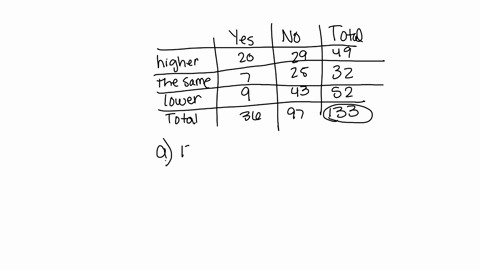 Yes No Total
higher 20 29 49
the same 7 25 32
lower 9 43 52
Total 36 97 133
a) r